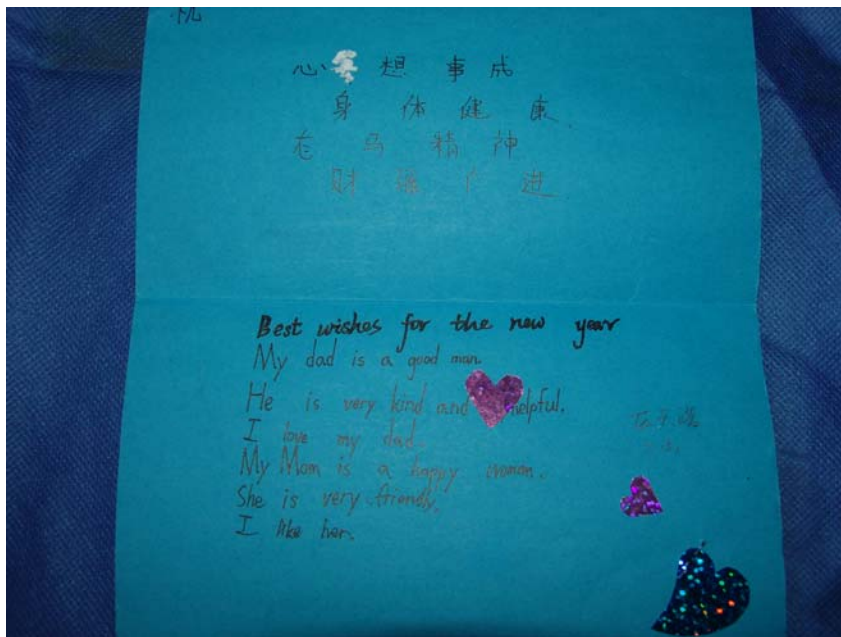 祝
心想事成
身体健康
龙马精神
财源广进
Best wishes for the new year
My dad is a good man.
He is very kind and helpful.
I love my dad.
My Mom is a happy woman.
She is very friendly.
I like her.